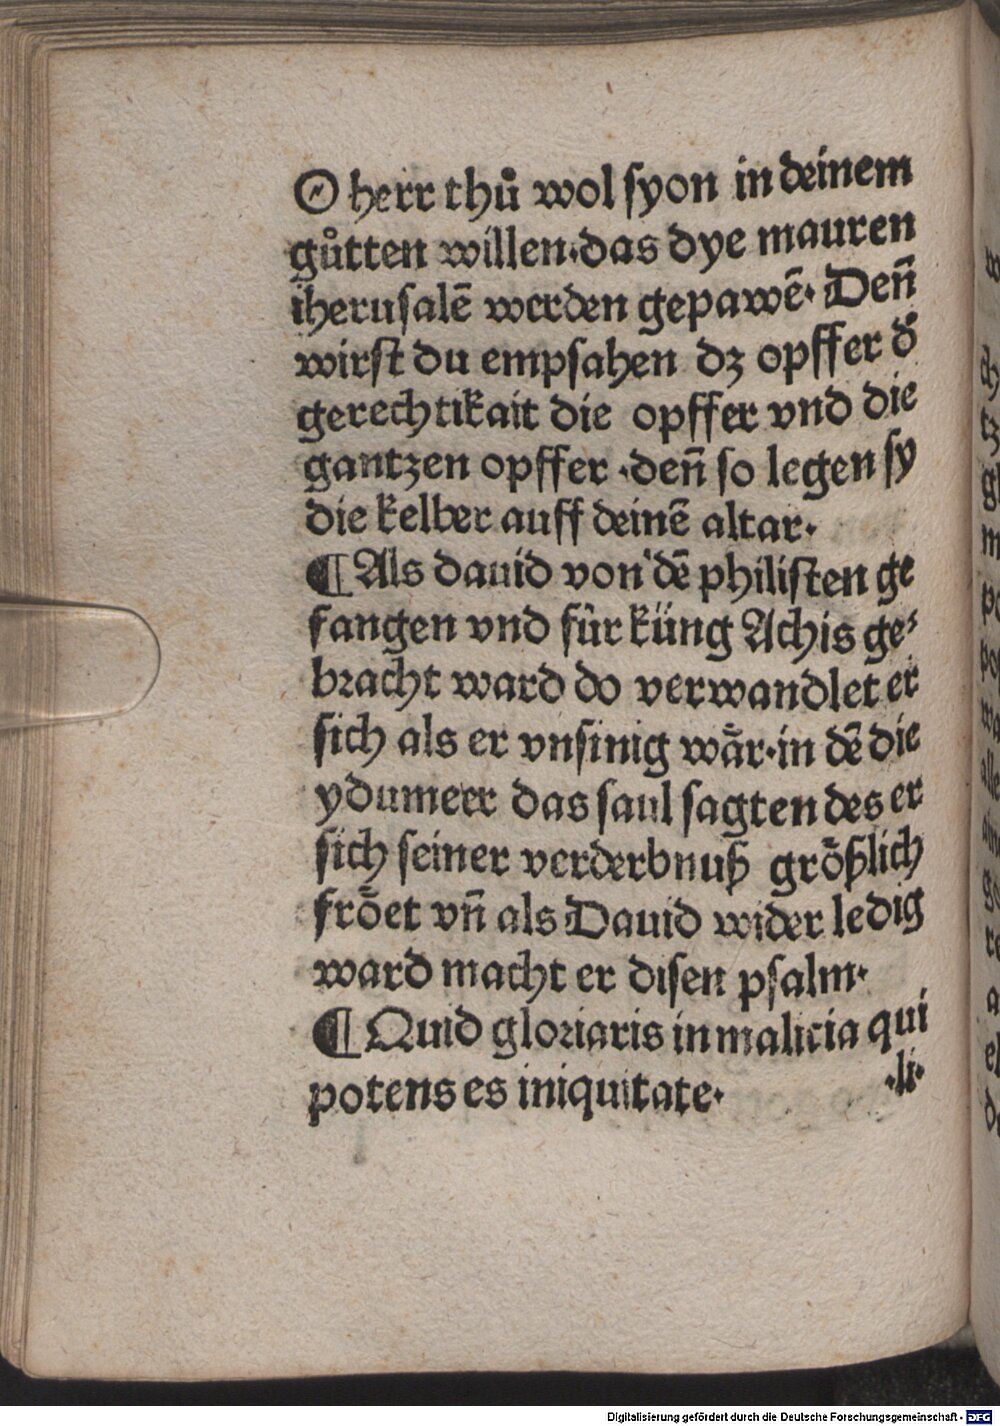 O herr thů wol syon in deinem
gůtten willen·das dye mauren
iherusalē werden gepawē· Deñ
wirst du empfahen dz opffer d̕
gerechtikait die opffer vnd die
gantzen opffer ·deñ so legen sy
die kelber auff deinē altar·
¶ Als dauid von dē philisten ge
fangen vnd für küng Achis ge⸗
bracht ward do verwandlet er
sich als er vnsinig wår·in dē die
ydumeer das saul sagten des er
sich seiner verderbnuß größlich
fröet vñ als Dauid wider ledig
ward macht er disen psalm·
¶ Quid gloriaris in malicia qui
potens es iniquitate· ·li·
Digitalisierung gefördert durch die Deutsche Forschungsgemeinschaft - DFG